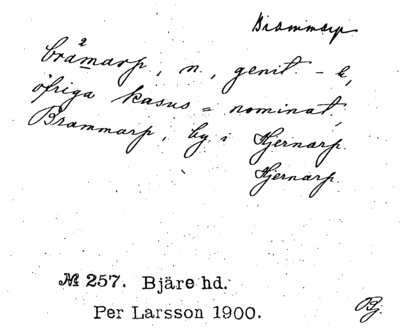 Brammarp
bråmarp, n., genit. - s,
öfriga kasus = nominat,
Brammarp, by i Hjernarp
Hjernarp.
№ 257. Bjäre hd.
Per Larsson 1900.
Bj.